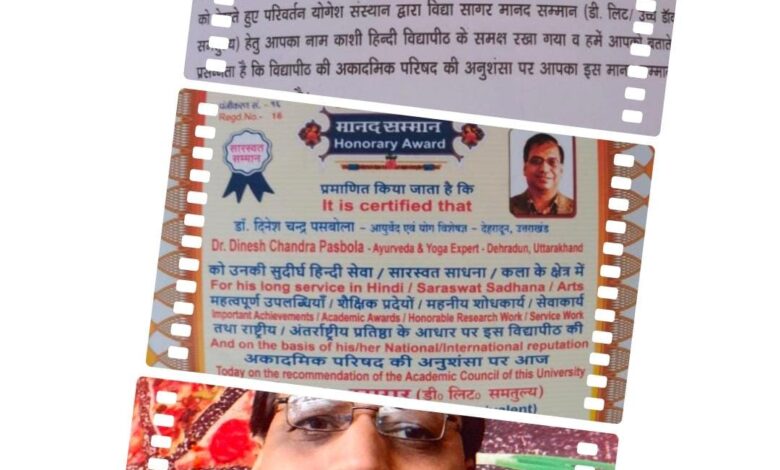 हुए परिवर्तन योगेश संस्थान द्वारा विद्या सागर मानद सम्मान (डी. लिट/ उच्च
हेतु आपका नाम काशी हिन्दी विद्यापीठ के समक्ष रखा गया व हमें
है कि विद्यापीठ की अकादमिक परिषद की अनुशंसा पर आपका इस
पंजीकरण सं. - १६
Regd.No.- 16
मानद सम्मान
Honorary Award
सारस्वत
सम्मान
प्रमाणित किया जाता है कि
It is certified that
डॉ. दिनेश चन्द्र पसबोला - आयुर्वेद एवं योग विशेषज्ञ - देहरादून, उत्तराखंड
Dr. Dinesh Chandra Pasbola - Ayurveda & Yoga Expert - Dehradun, Uttarakhand
को उनकी सुदीर्घ हिन्दी सेवा / सारस्वत साधना / कला के क्षेत्र में
For his long service in Hindi / Saraswat Sadhana / Arts
महत्वपूर्ण उपलब्धियाँ / शैक्षिक प्रदेयों / महनीय शोधकार्य / सेवाकार्य
Important Achievements / Academic Awards / Honorable Research Work / Service Work
तथा राष्ट्रीय / अंतर्राष्ट्रीय प्रतिष्ठा के आधार पर इस विद्यापीठ की
And on the basis of his/her National/International reputation
अकादमिक परिषद की अनुशंसा पर आज
Today on the recommendation of the Academic Council of this University
(डी० लिट० समतुल्य)